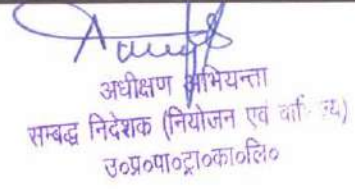 अधीक्षण अभियन्ता
सम्बद्ध निदेशक (नियोजन एवं
उ०प्र०पा०ट्रा०का०लि०